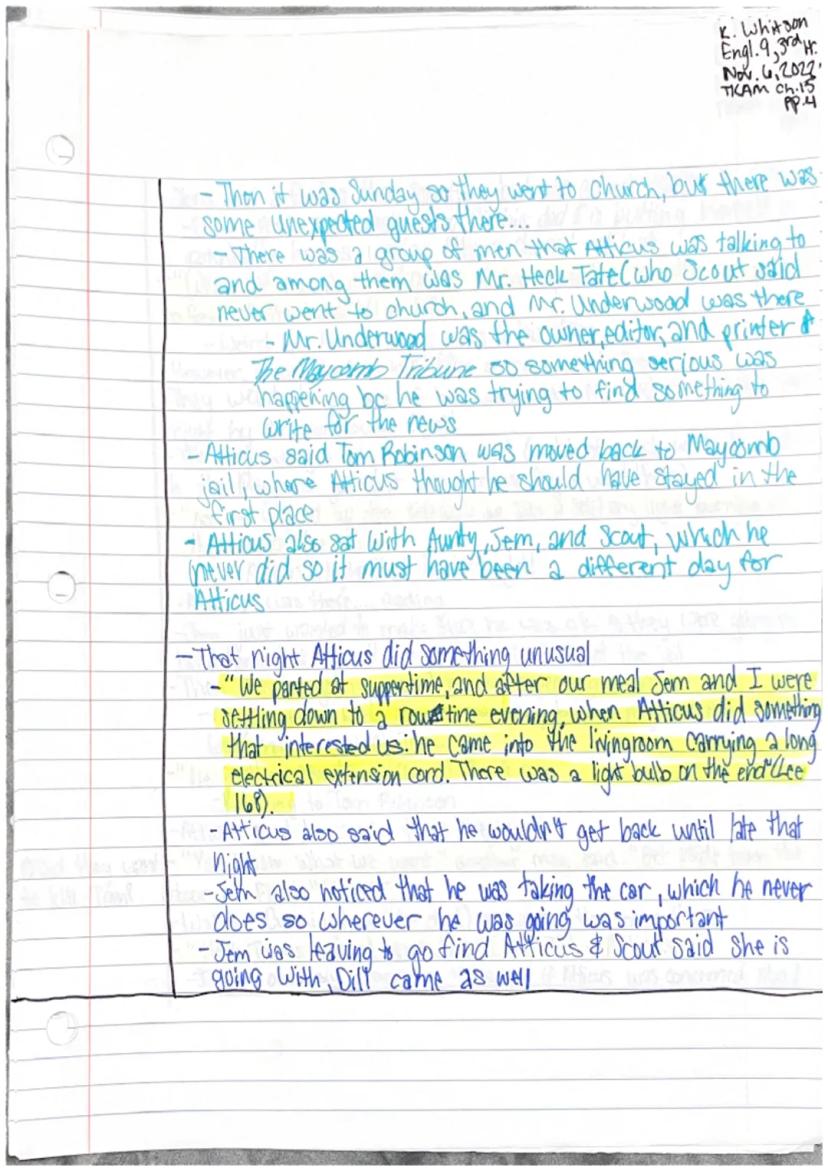 K. Whitson
Engl. 9, 3rd H.
Nov. 6, 2022
TKAM Ch. 15
pp. 4
- Then it was Sunday so they went to church, but there was
some unexpected guests there...
- There was a group of men that Atticus was talking to
and among them was Mr. Heck Tate (who Scout said
never went to church, and Mr. Underwood was there
- Mr. Underwood was the owner, editor, and printer
The Maycomb Tribune so something serious was
happening bc he was trying to find something to
write for the news
- Atticus said Tom Robinson was moved back to Maycomb
jail, where Atticus thought he should have stayed in the
first place
- Atticus also sat with Aunty, Jem, and Scout, which he
never did so it must have been a different day for
Atticus
- That night Atticus did something unusual
- "We parted at suppertime, and after our meal Jem and I were
settling down to a routine evening, when Atticus did something
that interested us: he came into the livingroom carrying a long
electrical extension cord. There was a light bulb on the end" (Lee
168).
- Atticus also said that he wouldn't get back until late that
night
- Jem also noticed that he was taking the car, which he never
does so wherever he was going was important
- Jem was leaving to go find Atticus & Scout said she is
going with, Dill came as well